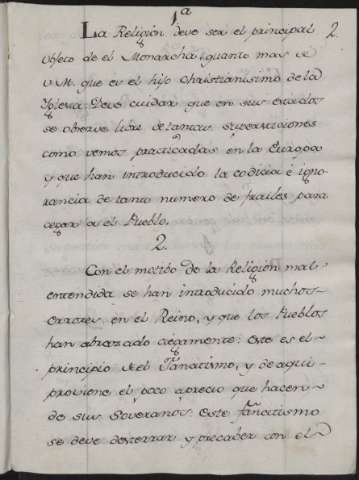 1.ª
2.
La Religión deve ser el principal
objeto de el Monarcha, quanto mas de
V.M. que es el hijo Christianisimo de la
Yglesia: Deve cuidar que en sus estados
se observe libre de tantas superstisiones
como vemos practicadas en la Europa
y que han introducido la codicia é igno-
rancia de tanto numero de frailes para
cegar a el Pueblo.
2.
Con el motibo de la Religión mal
entendida se han introducido muchos
errores en el Reino, y que los Pueblos
han abrazado ciegamente: Este es el
principio del Fanatismo, y de aqui
proviene el poco aprecio que hacen
de sus Soveranos. Este fanatismo
se deve desterrar y precaber con el